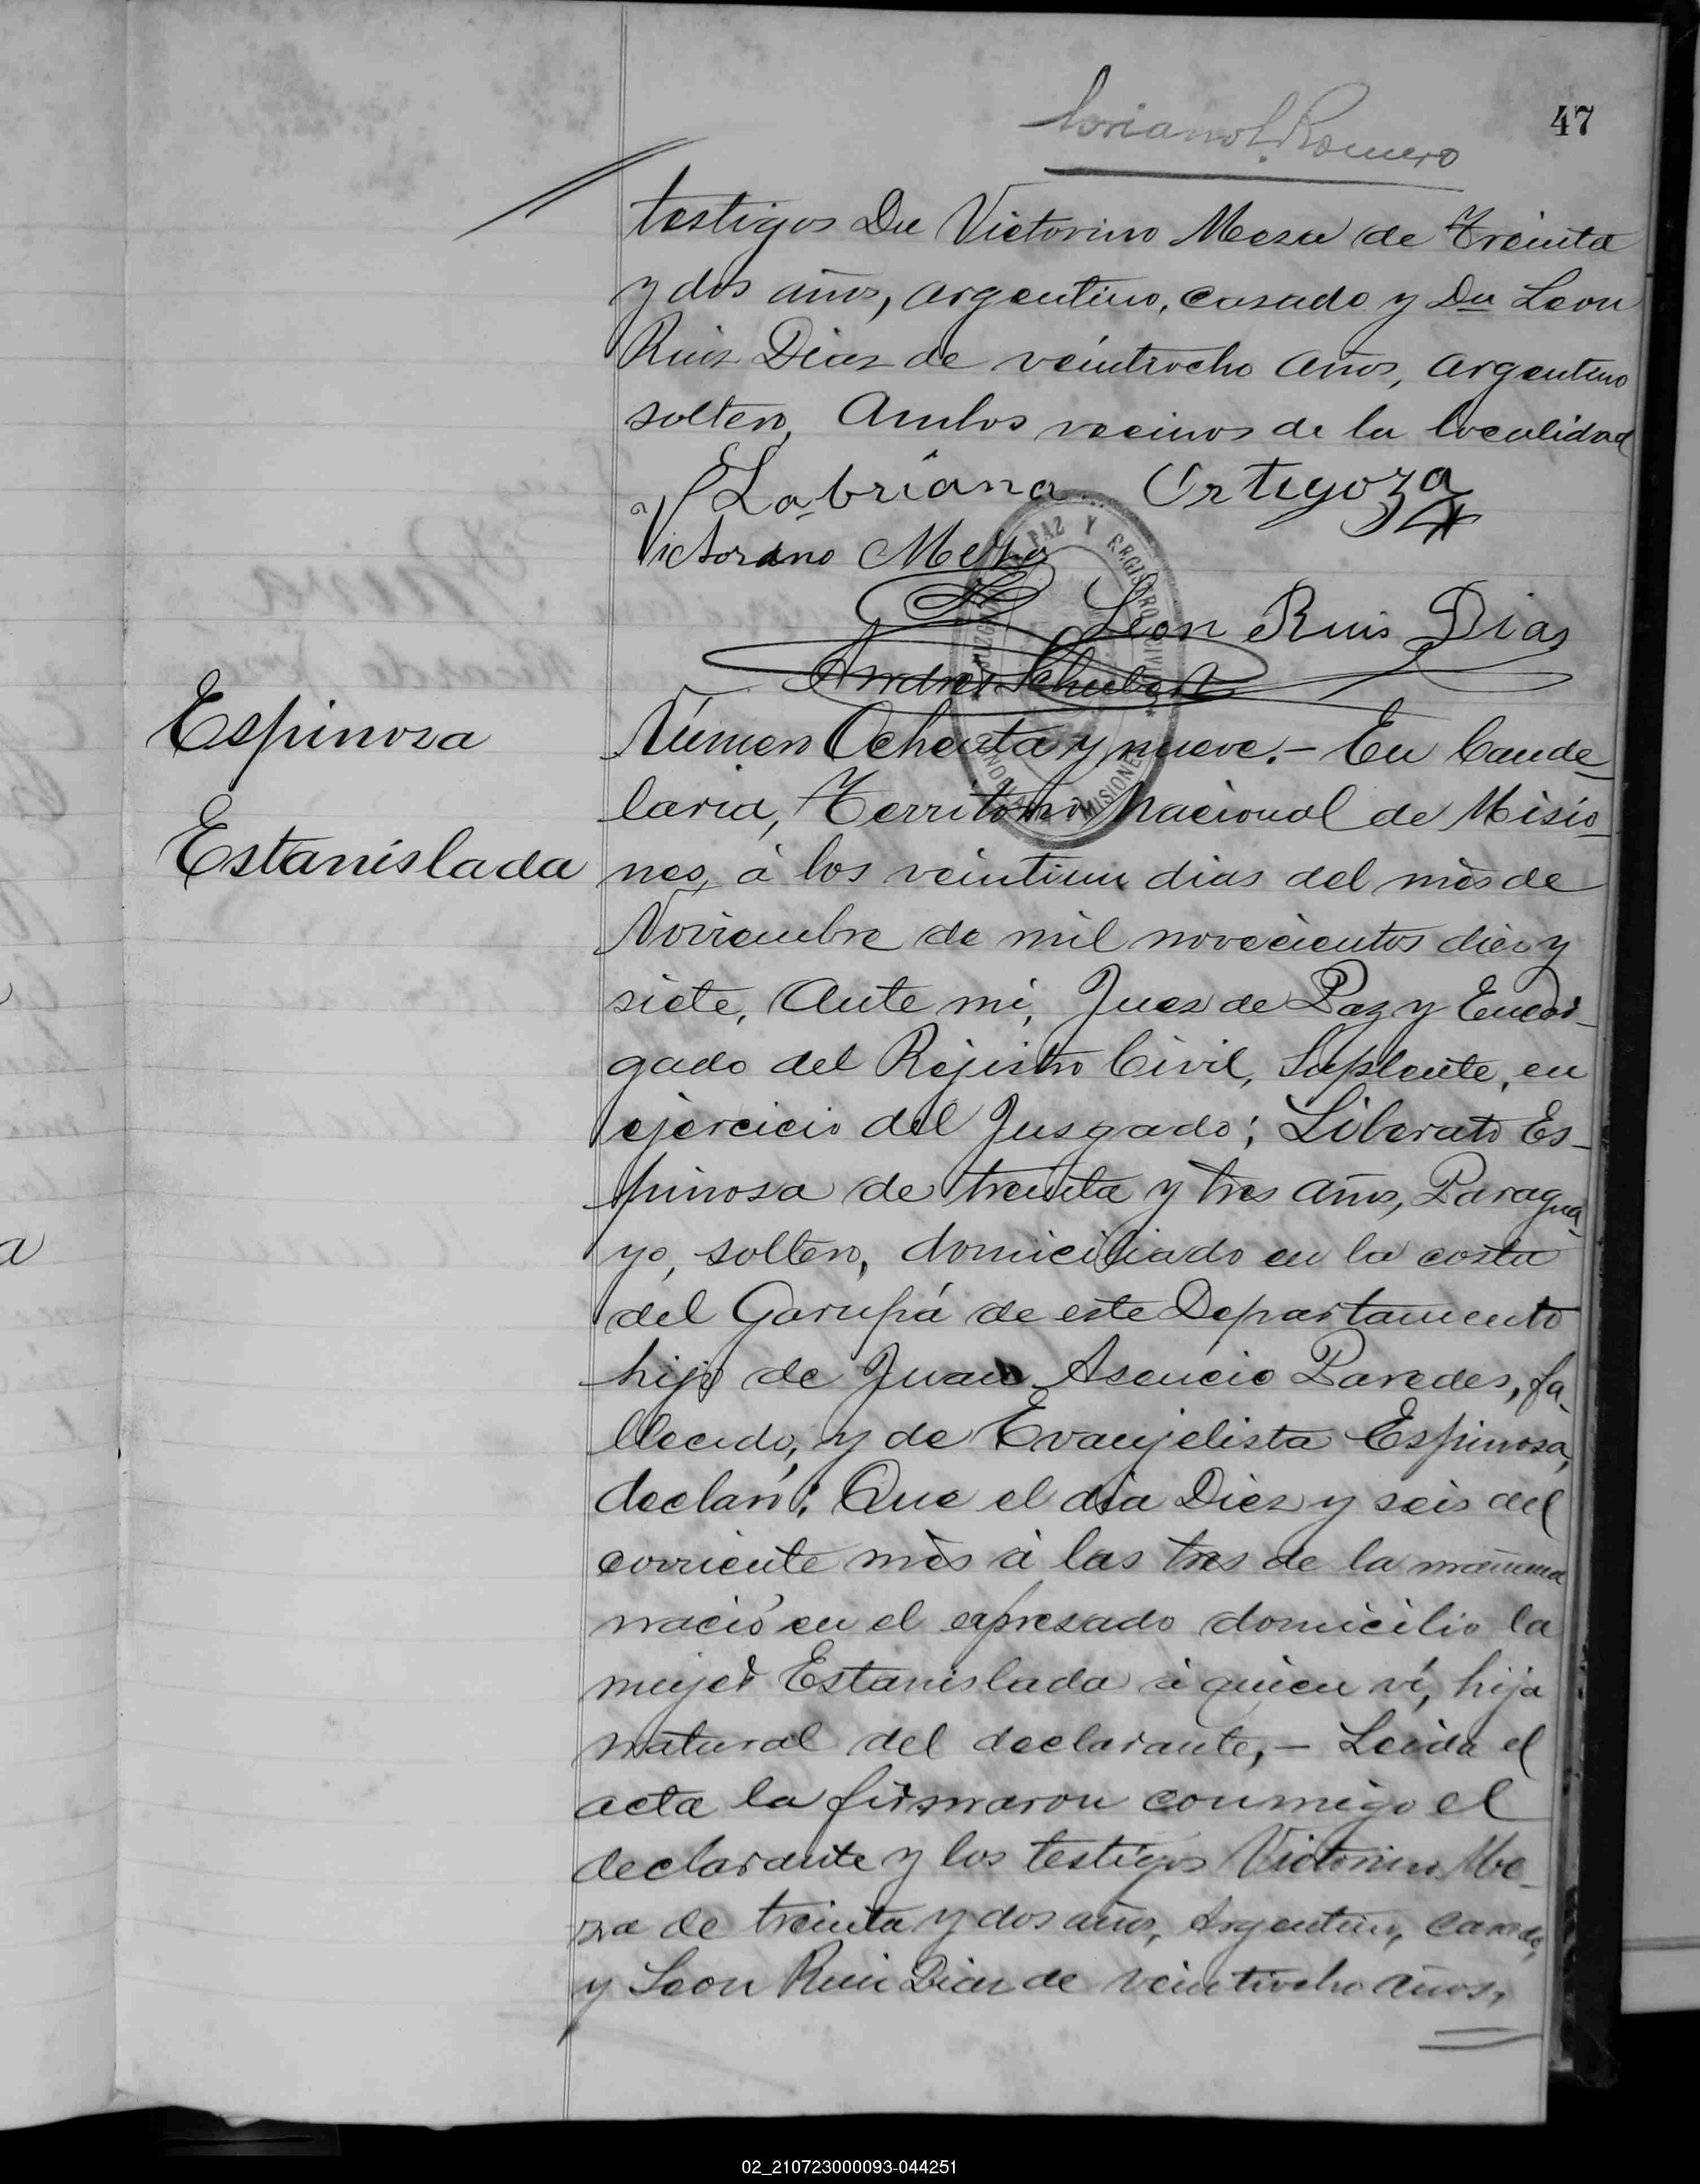 47
Soriano L. Romero
testigos Dn Victorino Mesa de treinta
y dos años, argentino, casado y Dn Leon
Ruiz Diaz de veintiocho años, argentino
soltero, Ambos vecinos de la localidad
Labriana Ortigoza
Victorino Meza
Leon Ruis Dias
Andres Schubert
PAZ Y REGISTRO CIVIL
MISIONES
Espinosa
Estanislada
Número Ochenta y nueve.- En Cande-
laria, Territorio Nacional de Misio-
nes, à los veintiun dias del mès de
Noviembre de mil novecientos diez y
siete, Ante mi, Juez de Paz y Encar-
gado del Rejistro Civil, Suplente, en
ejercicio del Jusgado; Liberato Es-
pinosa de treinta y tres años, Paragua-
yo, soltero, domiciliado en la costa
del Garupá de este Departamento
hijo de Juan Asencio Paredes, fa-
llecido, y de Evanjelista Espinosa,
declaró: Que el dia Diez y seis del
corriente mès à las tres de la mañana
nació en el expresado domicilio la
mujer Estanislada à quien ví, hija
natural del declarante,- Leida el
acta la firmaron conmigo el
declarante y los testigos Victorino Me-
za de treinta y dos años, Argentino, casado,
y Leon Ruiz Diaz de veintiocho años,
02_210723000093-044251